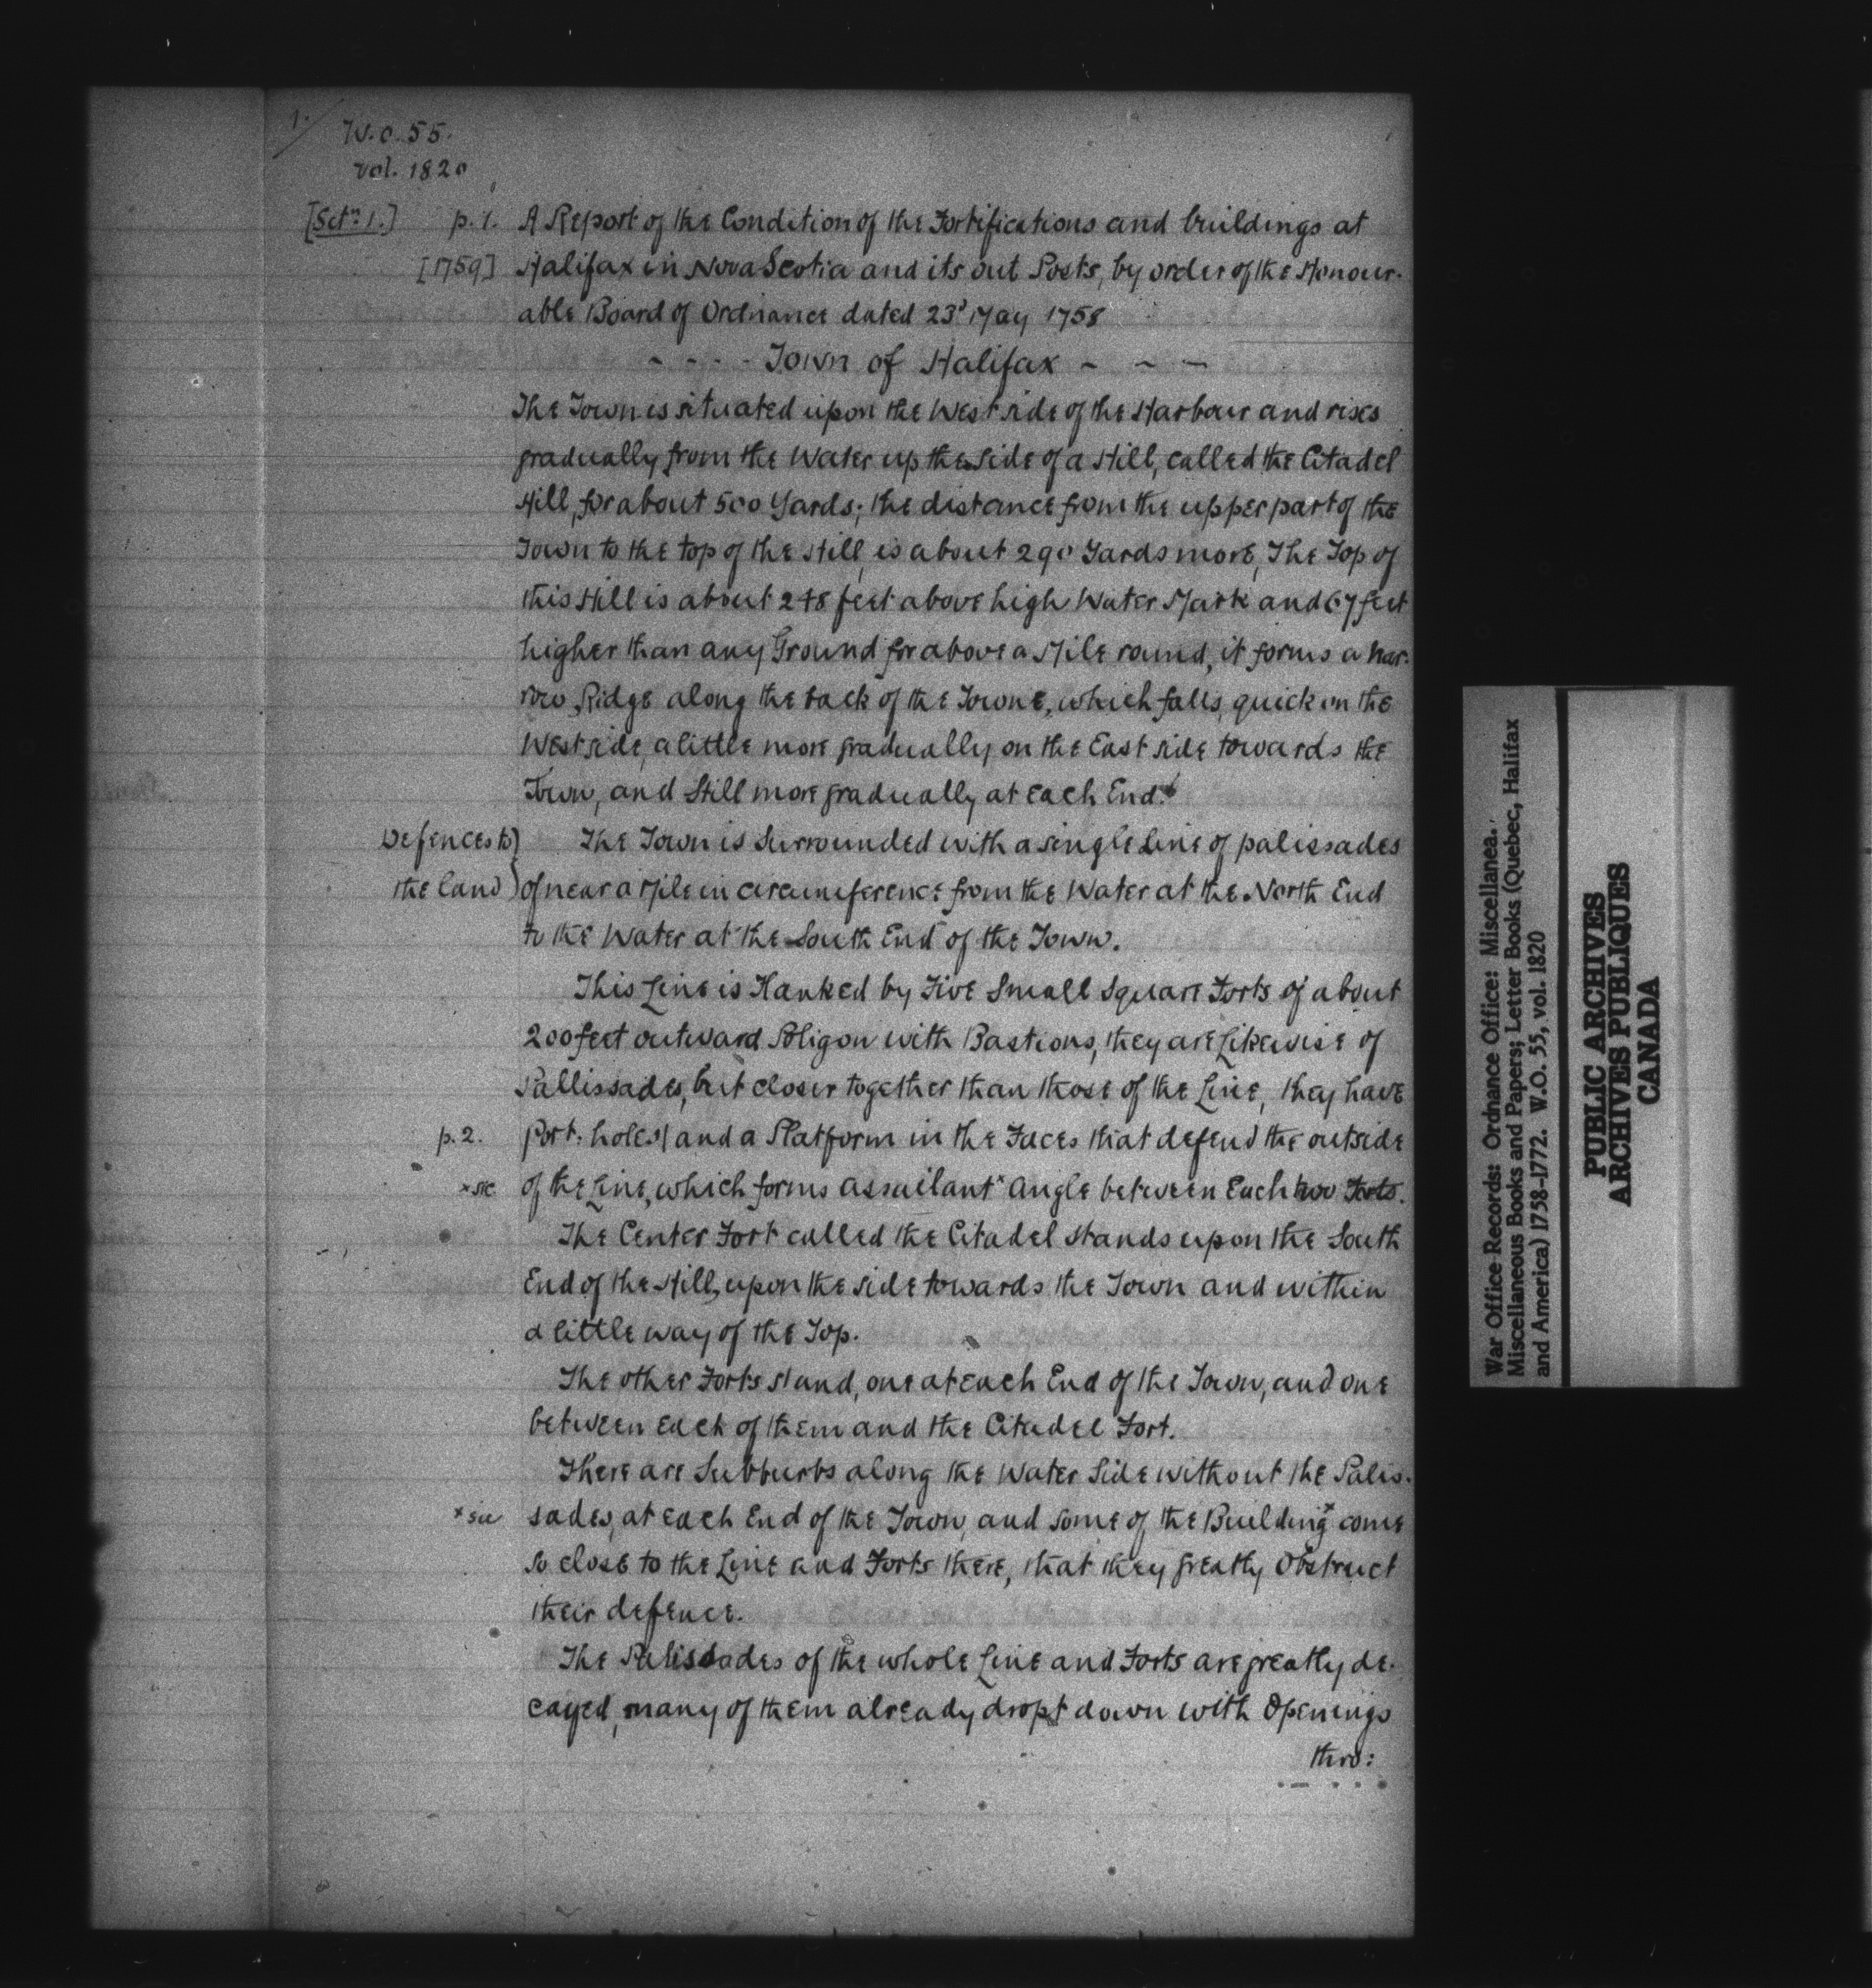 1.
W.O. 55.
vol. 1820
[Sctn 1.] p. 1. A Report of the Condition of the Fortifications and buildings at
[1759] Halifax in Nova Scotia and its out Posts, by order of the Honour-
able Board of Ordnance dated 23d May 1758
- - - - Town of Halifax - - -
The Town is situated upon the West side of the Harbour and rises
gradually from the Water up the side of a Hill, called the Citadel
Hill, for about 500 Yards; the distance from the upper part of the
Town to the top of the Hill, is about 290 Yards more, The Top of
this Hill is about 248 feet above high Water Mark and 67 feet
higher than any Ground for above a Mile round, it forms a nar-
row Ridge along the back of the Towne, which falls quick on the
West side, a little more gradually on the East side towards the
Town, and Still more gradually at each End.
Defences to } The Town is Surrounded with a single Line of palissades
the land } of near a Mile in circumference from the Water at the North End
to the Water at the South End of the Town.
This Line is Flanked by Five Small Square Forts of about
200 feet outward Poligon with Bastions, they are Likewise of
Pallissades, but closer together than those of the Line, they have
p. 2. Port: holes/ and a Platform in the Faces that defend the outside
x sic of the Line, which forms assailant x angle between Each two Forts.
The Center Fort called the Citadel stands upon the South
End of the Hill, upon the side towards the Town and within
a little way of the Top.
The other Forts stand, one at each End of the Town, and one
between each of them and the Citadel Fort.
There are Subburbs along the Water Side without the Palis-
x sic sades, at each End of the Town, and some of the Building x come
So close to the Line and Forts there, that they greatly Obstruct
their defence.
The Palissades of the whole Line and Forts are greatly de-
cayed, many of them already dropt down with Openings
thro:
War Office Records: Ordnance Office: Miscellanea.
Miscellaneous Books and Papers; Letter Books (Quebec, Halifax
and America) 1758-1772. W.O. 55, vol. 1820
PUBLIC ARCHIVES
ARCHIVES PUBLIQUES
CANADA